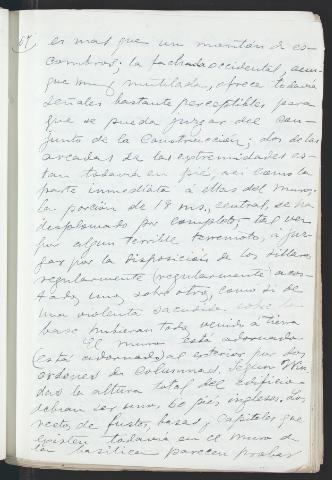 67
es mas que un montón de es-
combros; la fachada occidental, aun-
que muy mutilada, ofrece todavia
señales bastante perceptibles para
que se pueda juzgar del con-
junto de la Construcción; dos de las
arcadas de las extremidades es-
tan todavia en pié, asi como la
parte inmediata á ellas del muro;
la porción de 18 ms., central, se ha
desplomado por completo, tal vez
por algun terrible terremoto, á juz-
gar por la disposición de los sillares
regularmente (regularmente) acos-
tados, unos sobre otros, como si de
una violenta sacudida sobre la
base hubieran todos venido á tierra
El muro está adornado
(está adornado) al exterior por dos
ordenes de columnas. Segun
la altura total del edificio
debian ser unos 60 piés ingleses. Los
restos de fustos, basas y capiteles que
existen todavia en el muro de
la basilica parecen probar